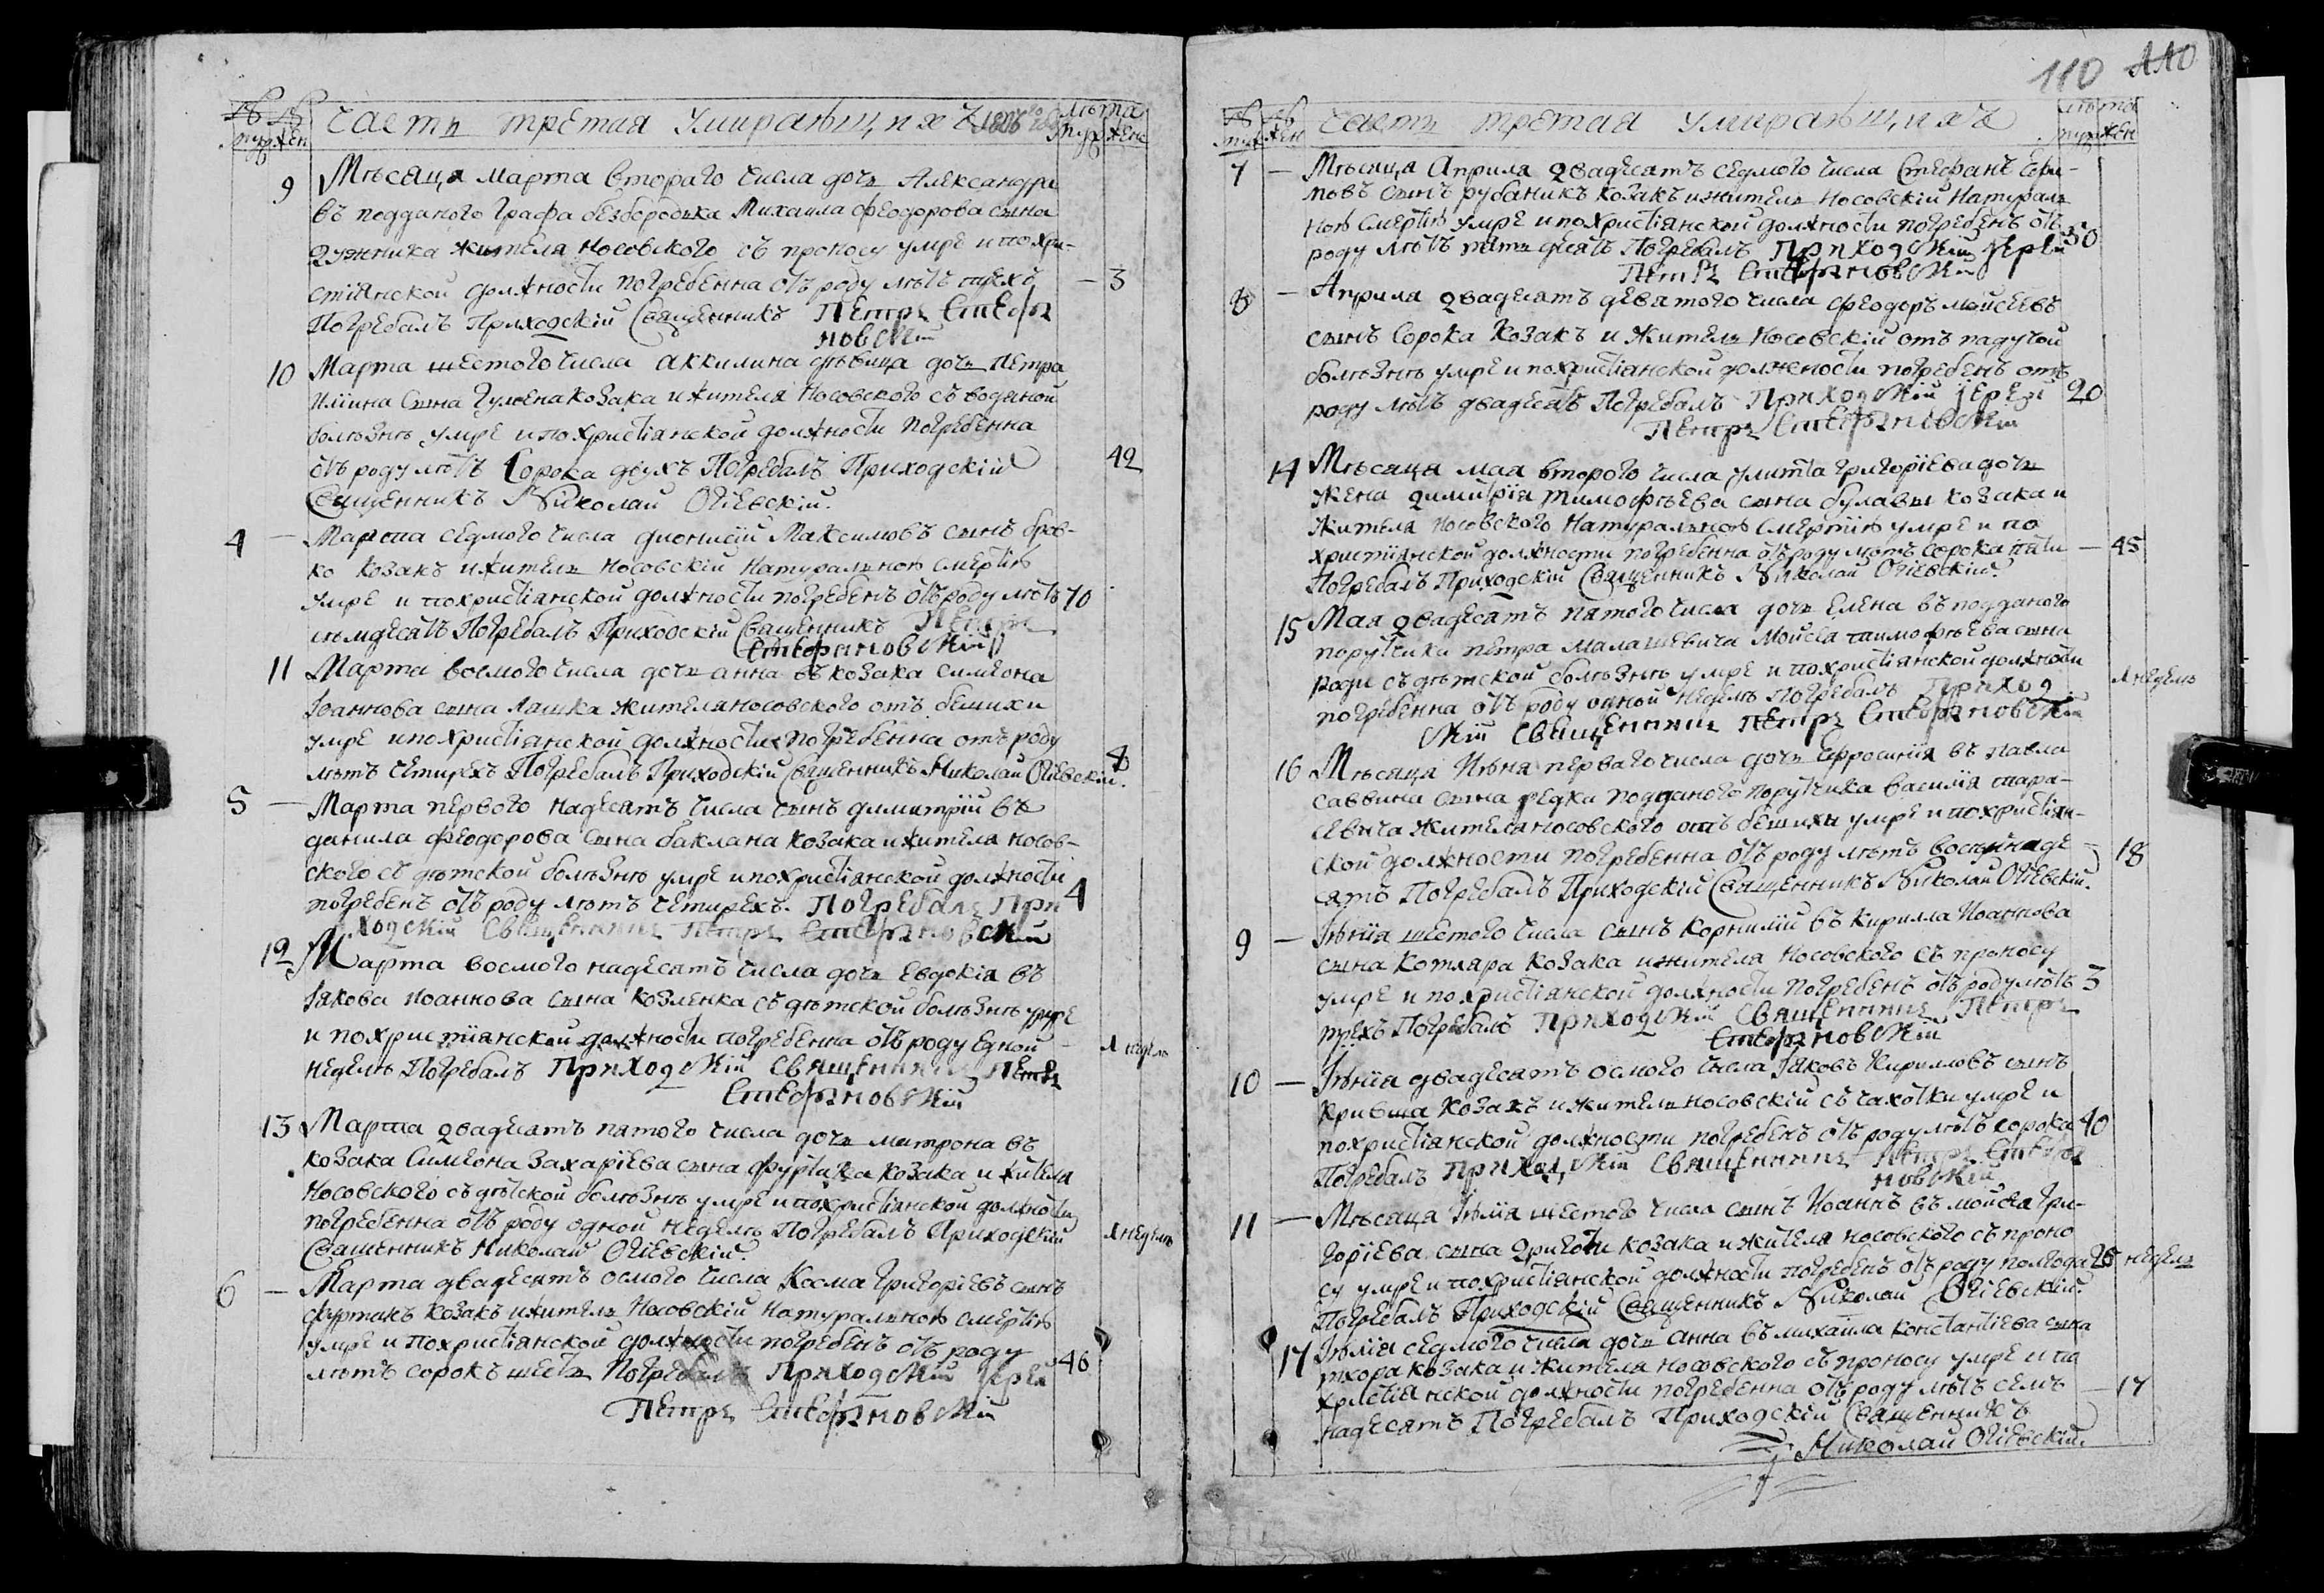 Часть третая умирающихъ
лѣта
муж жен
муж жен
9 Мѣсяца марта второго числа дочь Александра
въ подданого графа безбородька Михаила феодорова сына
дужника жителя Носовского съ проносу умре и по хри-
стіянской должности погребенна отъ роду лѣтъ трехъ — 3
Погребалъ Приходскій Священникъ Петръ Стефа
новскій
10 Марта шестого числа Аккилина дѣвица дочь Петра
Иліина Сына Гуленка козака и жителя Носовского съ водяной
болѣзнѣ умре и по христіянской должности погребенна
отъ роду лѣтъ Сорока двухъ Погребалъ Приходскій 42
Священникъ Николай Огіевскій.
4 — Марта седмого числа дионисій Максимовъ сынъ брав-
ко козакъ и житель Носовскій Натуральною смертію
умре и по христіянской должности погребенъ отъ роду лѣтъ 70
семдесятъ Погребалъ Приходскій Священникъ Петръ
Стефановскій
11 Марта восмого числа дочь анна въ козака симеона
Іоаннова сына Лашка жителя носовского отъ бешихи
умре и по христіянской должности погребенна отъ роду
лѣтъ четирехъ Погребалъ Приходскій Священникъ Николай Огіевскій. 4
5 — Марта первого надесять числа сынъ димитрій въ
данила феодорова сына баклана козака и жителя носов-
ского съ дѣтской болѣзнѣ умре и по христіянской должности
погребенъ отъ роду лѣтъ четирехъ. Погребалъ При 4
ходскій Священникъ Петръ Стефановскій
12 Марта восмого надесять числа дочь Евдокія въ
Іякова Иоаннова сына козленка съ дѣтской болѣзнѣ умре
и по христіянской должности погребенна отъ роду Едной — 1 неделя
неделѣ Погребалъ Приходскій Священникъ Петръ
Стефановскій
13 Марта двадесять пятого числа дочь митрона въ
козака Симеона Захаріева сына фуртака козака и жителя
Носовского съ дѣтской болѣзнѣ умре и по христіянской должности
погребенна отъ роду одной неделѣ Погребалъ Приходскій 1 неделя
Священникъ Николай Огіевскій.
6 — Марта двадесять осмого числа Косма Григоріевъ сынъ
фуртакъ козакъ и житель Носовскій натуральною смертію
умре и по христіянской должности погребенъ отъ роду
лѣтъ сорокъ шесть Погребалъ Приходскій Іерей 46
Петръ Стефановскій
110 110
Часть третая умирающихъ
лѣта
муж жен
муж жен
7 — Мѣсяца Априла двадесятъ седмого числа Стефанъ
сынъ рубаникъ козакъ и житель Носовскій Натураль
ною Смертію умре и по христіянской должности погребенъ отъ
роду лѣтъ пятьдесятъ Погребалъ Приходскій Іерей 50
Петръ Стефановскій
8 — Априла двадесятъ девятого числа феодоръ мойсеевъ
сынъ Сорока козакъ и житель Носовскій отъ падучой
болѣзнѣ умре и по христіянской должности погребенъ отъ
роду лѣтъ двадесятъ Погребалъ Приходскій Іерей 20
Петръ Стефановскій
14 Мѣсяца мая второго числа улита григоріева дочь
жена димитрія тимофѣева сына булавы козака и
жителя носовского Натуральною смертію умре и по
христіянской должности погребенна отъ роду лѣтъ сорока пяти — 45
Погребалъ Приходскій Священникъ Николай Огіевскій.
15 Мая двадесятъ пятого числа дочь Елена въ подданого
поручика петра малашевича Мойсея тимофѣева сына
съ дѣтской болѣзнѣ умре и по христіянской должности
погребенна отъ роду одной неделѣ погребалъ Приход 1 неделя
скій Священникъ Петръ Стефановскій
16 Мѣсяца Июня первого числа дочь Ефросинія въ павла
саввина сына редки подданого поручика василія тара-
севича жителя носовского отъ бешихи умре и по христіян-
ской должности погребенна отъ роду лѣтъ восемнаде — 18
сятъ Погребалъ Приходскій Священникъ Николай Огіевскій.
9 — Іюнія шестого числа сынъ корнилій въ кирилла Иоаннова
сына котляра козака и жителя Носовского съ проносу
умре и по христіянской должности погребенъ отъ роду лѣтъ 3
трехъ Погребалъ Приходскій Священникъ Петръ
Стефановскій
10 — Іюнія двадесятъ осмого числа Іяковъ Кирилловъ сынъ
кривша козакъ и житель носовскій съ чахотки умре и
по христіянской должности погребенъ отъ роду лѣтъ сорока 40
Погребалъ Приходскій Священникъ Петръ Стефа
новскій
11 — Мѣсяца Іюлія шестого числа сынъ Иоаннъ въ мойсея гри-
горіева сына дриготи козака и жителя носовского съ проно
су умре и по христіянской должности погребенъ отъ роду полгода 26 недель
Погребалъ Приходскій Священникъ Николай Огіевскій.
17 Іюлія седмого числа дочь анна въ михаила константіева сына
тхора козака и жителя носовского съ проносу умре и по
христіянской должности погребенна отъ роду лѣтъ семъ — 17
надесятъ Погребалъ Приходскій Священникъ
Николай Огіевскій.